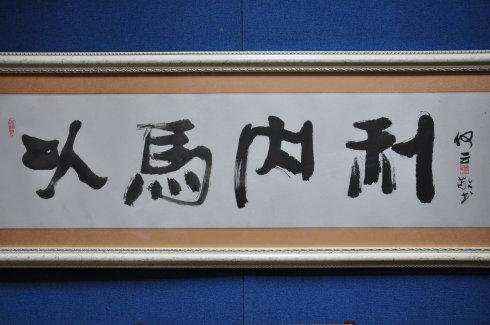 以馬内利